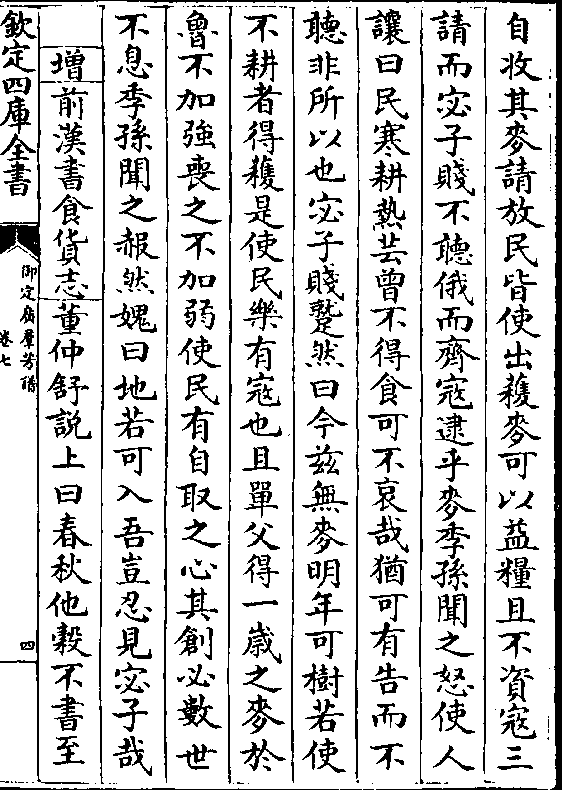 自收其麥請放民皆使出穫麥可以益糧且不資寇三
請而宓子賤不聽俄而齊寇逮乎麥季孫聞之怒使人
讓曰民寒耕熱芸曾不得食可不哀哉猶可有告而不
聽非所以也宓子賤蹵然曰今兹無麥明年可樹若使
不耕者得穫是使民樂有寇也且單父得一歲之麥於
魯不加強喪之不加弱使民有自取之心其創必數世
不息季孫聞之赧然媿曰地若可入吾豈忍見宓子哉
增前漢書食貨志董仲舒説上曰春秋他穀不書至
欽定四庫全書
御定廣羣芳譜
卷七
四